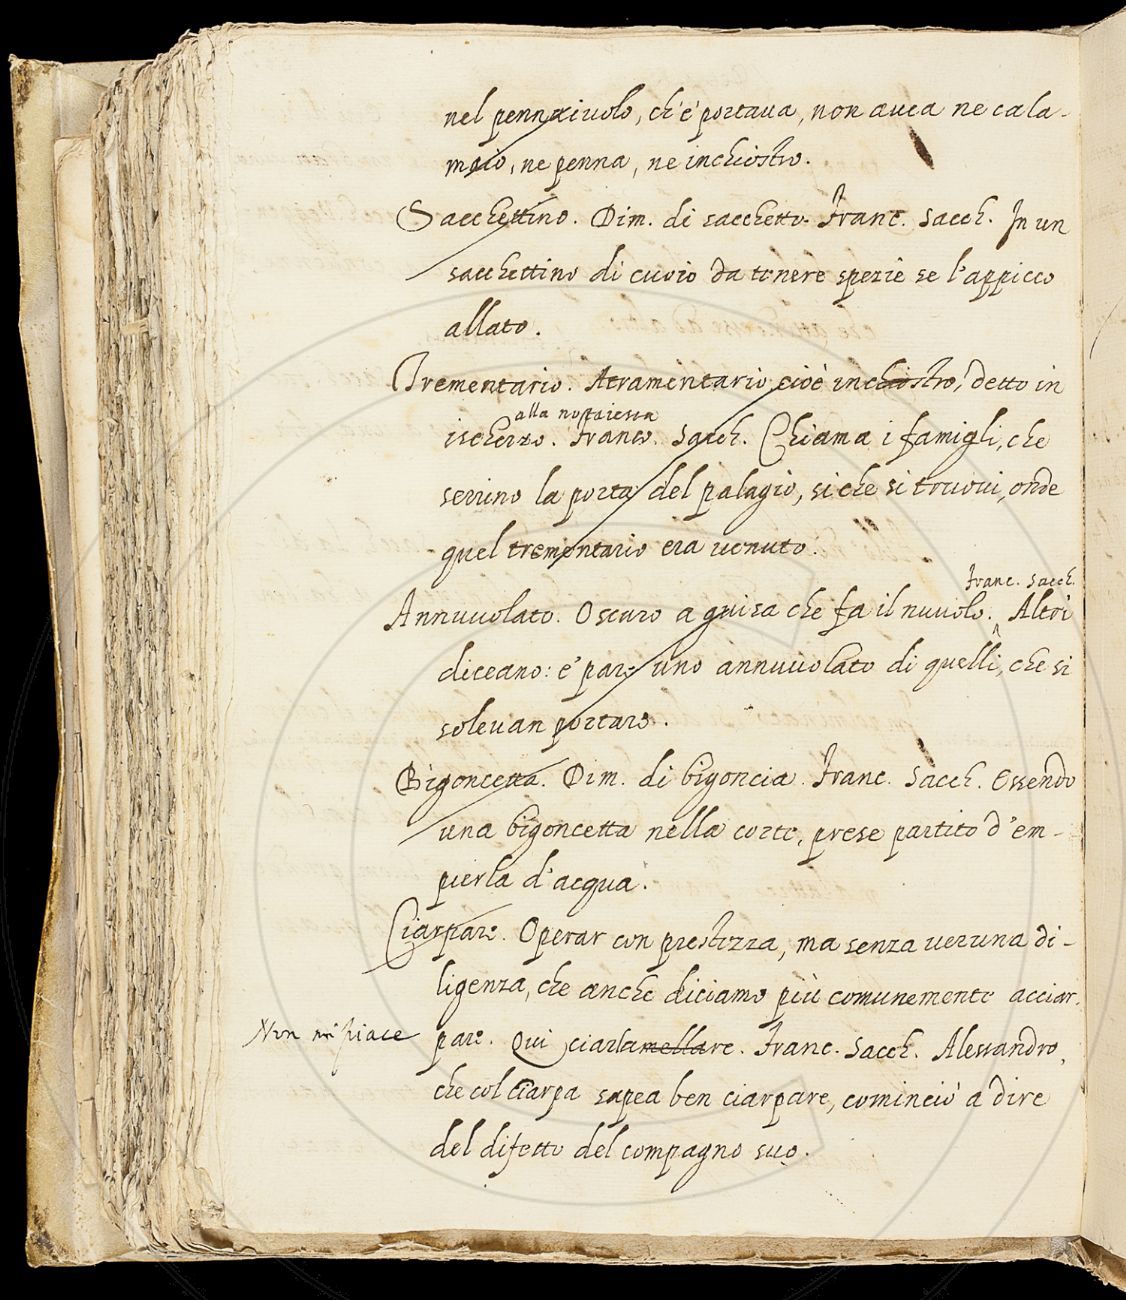 nel pennaiuolo, ch'e' portaua, non auea ne cala-
maio, ne penna, ne inchiostro.
Sacchettino. Dim. di sacchetto. Franc. Sacch. In un
sacchettino di cuoio da tenere spezie se l'appicco
allato.
Trementario. Atramentario, cioè inchiostro, detto in
alla notaiesca
ischerzo. Franco. Sacch. Chiama i famigli, che
serrino la porta del palagio, si che si truoui, onde
quel trementario era uenuto.
Franc. Sacch.
Annuuolato. Oscuro a guisa che fa il nuuolo. ^ Altri
diceano: e' pare uno annuuolato di quelli, che si
soleuan portare.
Bigoncetta. Dim. di bigoncia. Franc. Sacch. Essendo
una bigoncetta nella corte, prese partito d'em-
pierla d'acqua.
Ciarpare. Operar con prestezza, ma senza ueruna di-
ligenza, che anche diciamo più comunemente acciar-
Non mi piace
pare. Qui ciarlamellare. Franc. Sacch. Alessandro,
che col Ciarpa sapea ben ciarpare, cominciò a dire
del difetto del compagno suo.